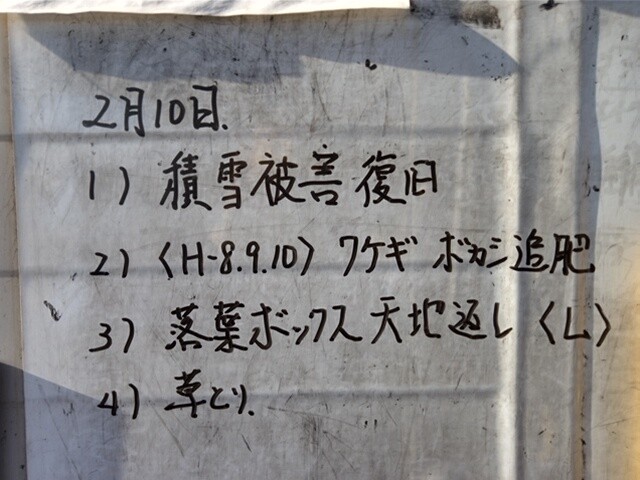 2月10日.
1) 積雪被害復旧
2) 〈H-8.9.10〉 ワケギ ボカシ追肥
3) 落葉ボックス天地返し〈L〉
4) 草とり.